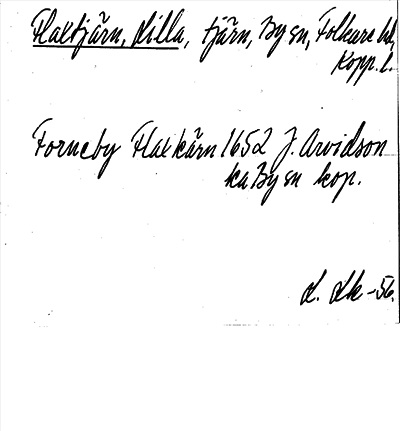 Flaxtjärn, Lilla, tjärn, By sn, Folkare hd,
Kopp. l.
Forneby Flax kärn 1652 J. Arvidson
ka By sn kop.
L. Lk -56.